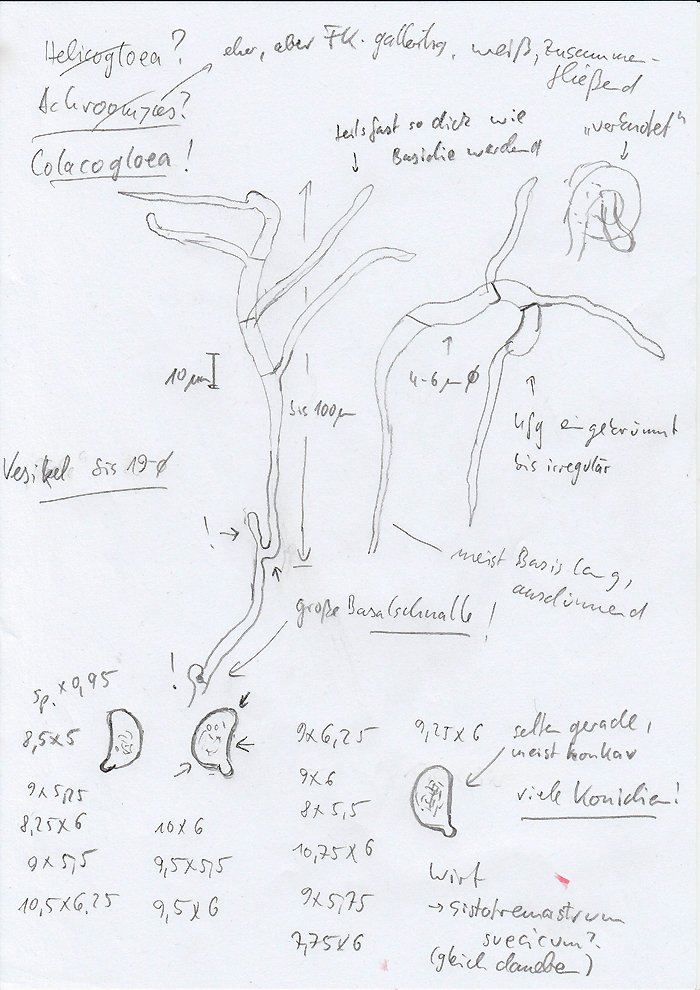 Helicogloea?
eher, aber FK. gallertig, weiß, zusammen-
fließend
Achroomyces?
Colacogloea!
teils fast so dick wie
Basidie werdend
„verknotet“
10 µm
bis 100 µm
4-6 µm ø
hfg eingekrümmt
bis irregulär
Vesikel bis 19 ø
!
meist Basis lang,
ausdünnend
große Basalschnalle!
!
Sp. x 0,95
8,5 x 5
9 x 5,25
8,25 x 6
9 x 5,5
10,5 x 6,25
10 x 6
9,5 x 5,5
9,5 x 6
9 x 6,25
9 x 6
8 x 5,5
10,75 x 6
9 x 5,75
7,75 x 6
9,25 x 6
selten gerade,
meist konkav
viele Konidien!
Wirt
→ Sistotremastrum
suecicum?
(gleich daneben)